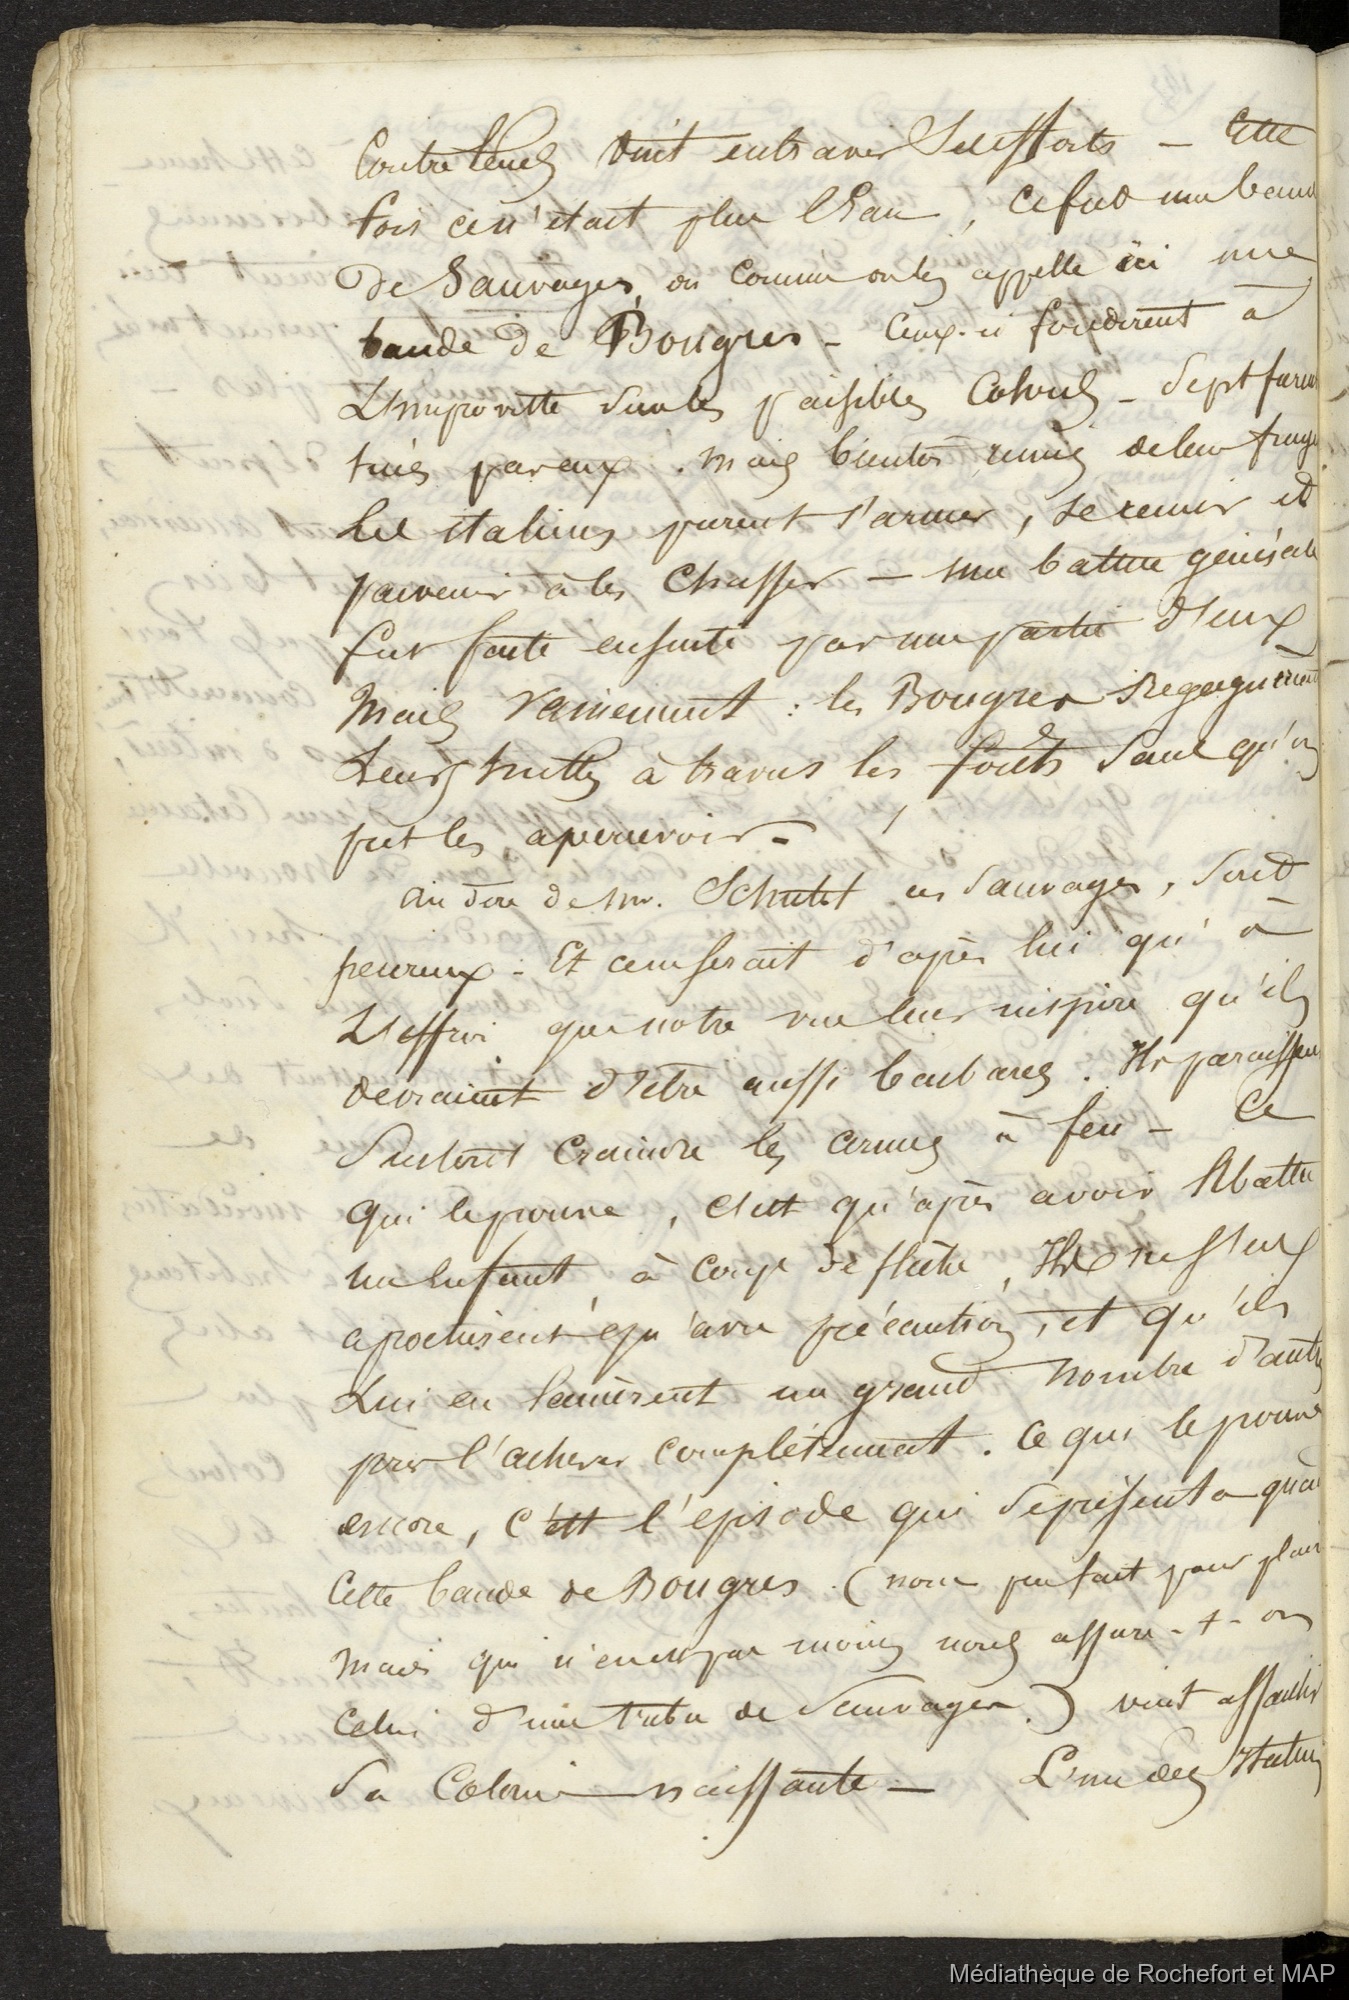 Contre temps vint entraver ses efforts — Cette
fois ce n'était plus l'Eau, ce fut une bande
de Sauvages, ou comme on les appelle ici une
bande de Bougres — Ceux-ci fondirent à
L'improviste sur les paisibles Colons — Sept furent
tués par eux. Mais bientôt remis de leur frayeur
Les italiens purent s'armer, se réunir et
parvenir à les Chasser — une battue générale
fut faite ensuite par une partie d'eux
Mais Vainement : les Bougres Regagnèrent
Leurs huttes à travers les forêts Sans qu'on
put les apercevoir —
au dire de Mr. Schutel ces Sauvages, Sont
peureux — Et ce ne serait d'après lui qu'à
L'effroi que notre vue leur inspire qu'ils
devraient d'être aussi barbares. Ils paraissent
Surtout Craindre les armes à feu — Ce
qui le prouve, c'est qu'après avoir Abattu
un Enfant, à coups de flèche, Ils ne s'en
aprochèrent qu'avec précaution, et qu'ils
Lui en lancèrent un grand Nombre d'autres
pour l'achever complètement. Ce qui le prouve
encore, c'est l'épisode qui se présenta quand
Cette bande de Bougres (nom peu fait pour plaire
Mais qui n'en est pas moins nous assure-t-on
Celui d'une tribu de Sauvages.) vint assaillir
Sa Colonie naissante — L'un des Italiens
Médiathèque de Rochefort et MAP